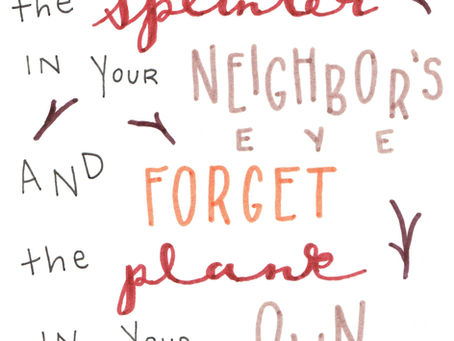 the splinter
IN YOUR NEIGHBOR'S
EYE
AND FORGET
the plank
IN YOUR OWN